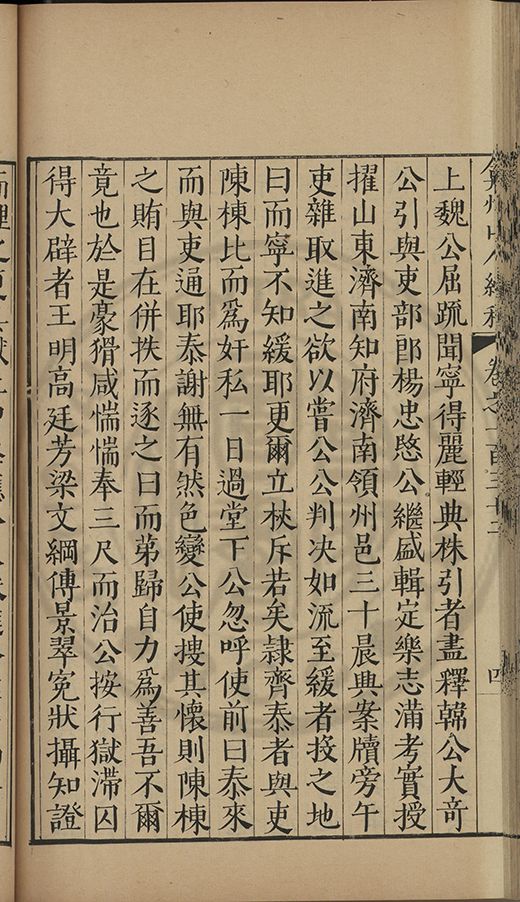 上魏公屈疏聞寧得麗輕典株引者盡釋韓公大奇
公引與吏部郎楊忠愍公繼盛輯定樂志滿考實授
擢山東濟南知府濟南領州邑三十晨興案牘旁午
吏雜取進之欲以嘗公公判決如流至緩者投之地
曰而寧不知緩耶更爾立杖斥若矣隷齊泰者與吏
陳棟比而為奸私一日過堂下公忽呼使前曰泰來
而與吏通耶泰謝無有然色變公使搜其懷則陳棟
之賄目在併抶而逐之曰而弟歸自力為善吾不爾
竟也於是豪猾咸惴惴奉三尺而治公按行獄滯囚
得大辟者王明高廷芳梁文綱傅景翠冤狀攝知證
卷之一百三十二
四